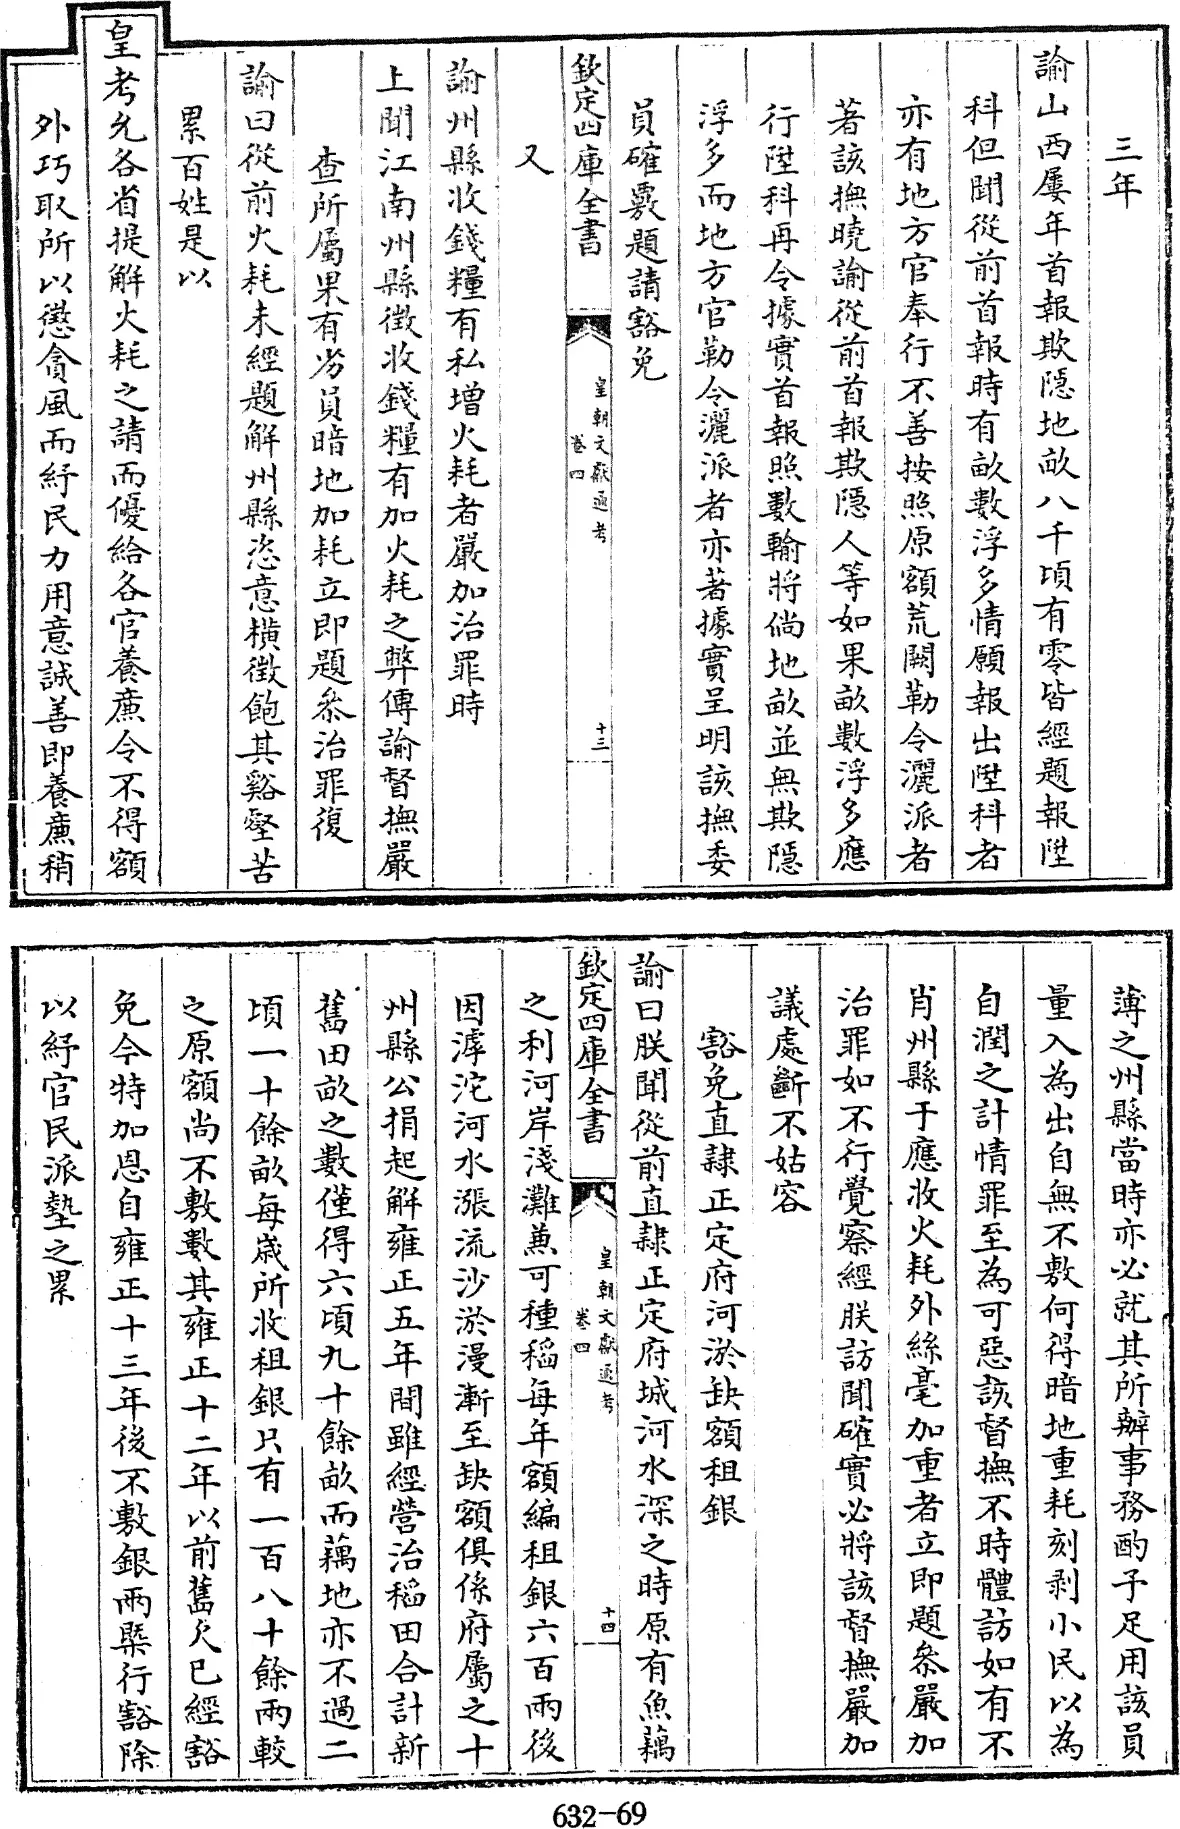 三年
諭山西屢年首報欺隱地畝八千頃有零皆經題報陞
科但聞從前首報時有畝數浮多情願報出陞科者
亦有地方官奉行不善按照原額荒闕勒令灑派者
著該撫曉諭從前首報欺隱人等如果畝數浮多應
行陞科再令據實首報照數輸將倘地畝並無欺隱
浮多而地方官勒令灑派者亦著據實呈明該撫委
員確覈題請豁免
欽定四庫全書
皇朝文獻通考
卷四
十三
又
諭州縣收錢糧有私增火耗者嚴加治罪時
上聞江南州縣徵收錢糧有加火耗之弊傳諭督撫嚴
查所屬果有劣員暗地加耗立即題叅治罪復
諭曰從前火耗未經題解州縣恣意橫徵飽其谿壑苦
累百姓是以
皇考允各省提解火耗之請而優給各官養廉令不得額
外巧取所以懲貪風而紓民力用意誠善即養廉稍
薄之州縣當時亦必就其所辦事務酌予足用該員
量入為出自無不敷何得暗地重耗刻剥小民以為
自潤之計情罪至為可惡該督撫不時體訪如有不
肖州縣于應收火耗外絲毫加重者立即題叅嚴加
治罪如不行覺察經朕訪聞確實必將該督撫嚴加
議處斷不姑容
豁免直隷正定府河淤缺額租銀
諭曰朕聞從前直隷正定府城河水深之時原有魚藕
欽定四庫全書
皇朝文獻通考
卷四
十四
之利河岸淺灘兼可種稻每年額編租銀六百兩後
因滹沱河水漲流沙淤漫漸至缺額俱係府屬之十
州縣公捐起解雍正五年間雖經營治稻田合計新
舊田畝之數僅得六頃九十餘畝而藕地亦不過二
頃一十餘畝每歲所收租銀只有一百八十餘兩較
之原額尚不敷數其雍正十二年以前舊欠已經豁
免今特加恩自雍正十三年後不敷銀兩槩行豁除
以紓官民派墊之累
632-69